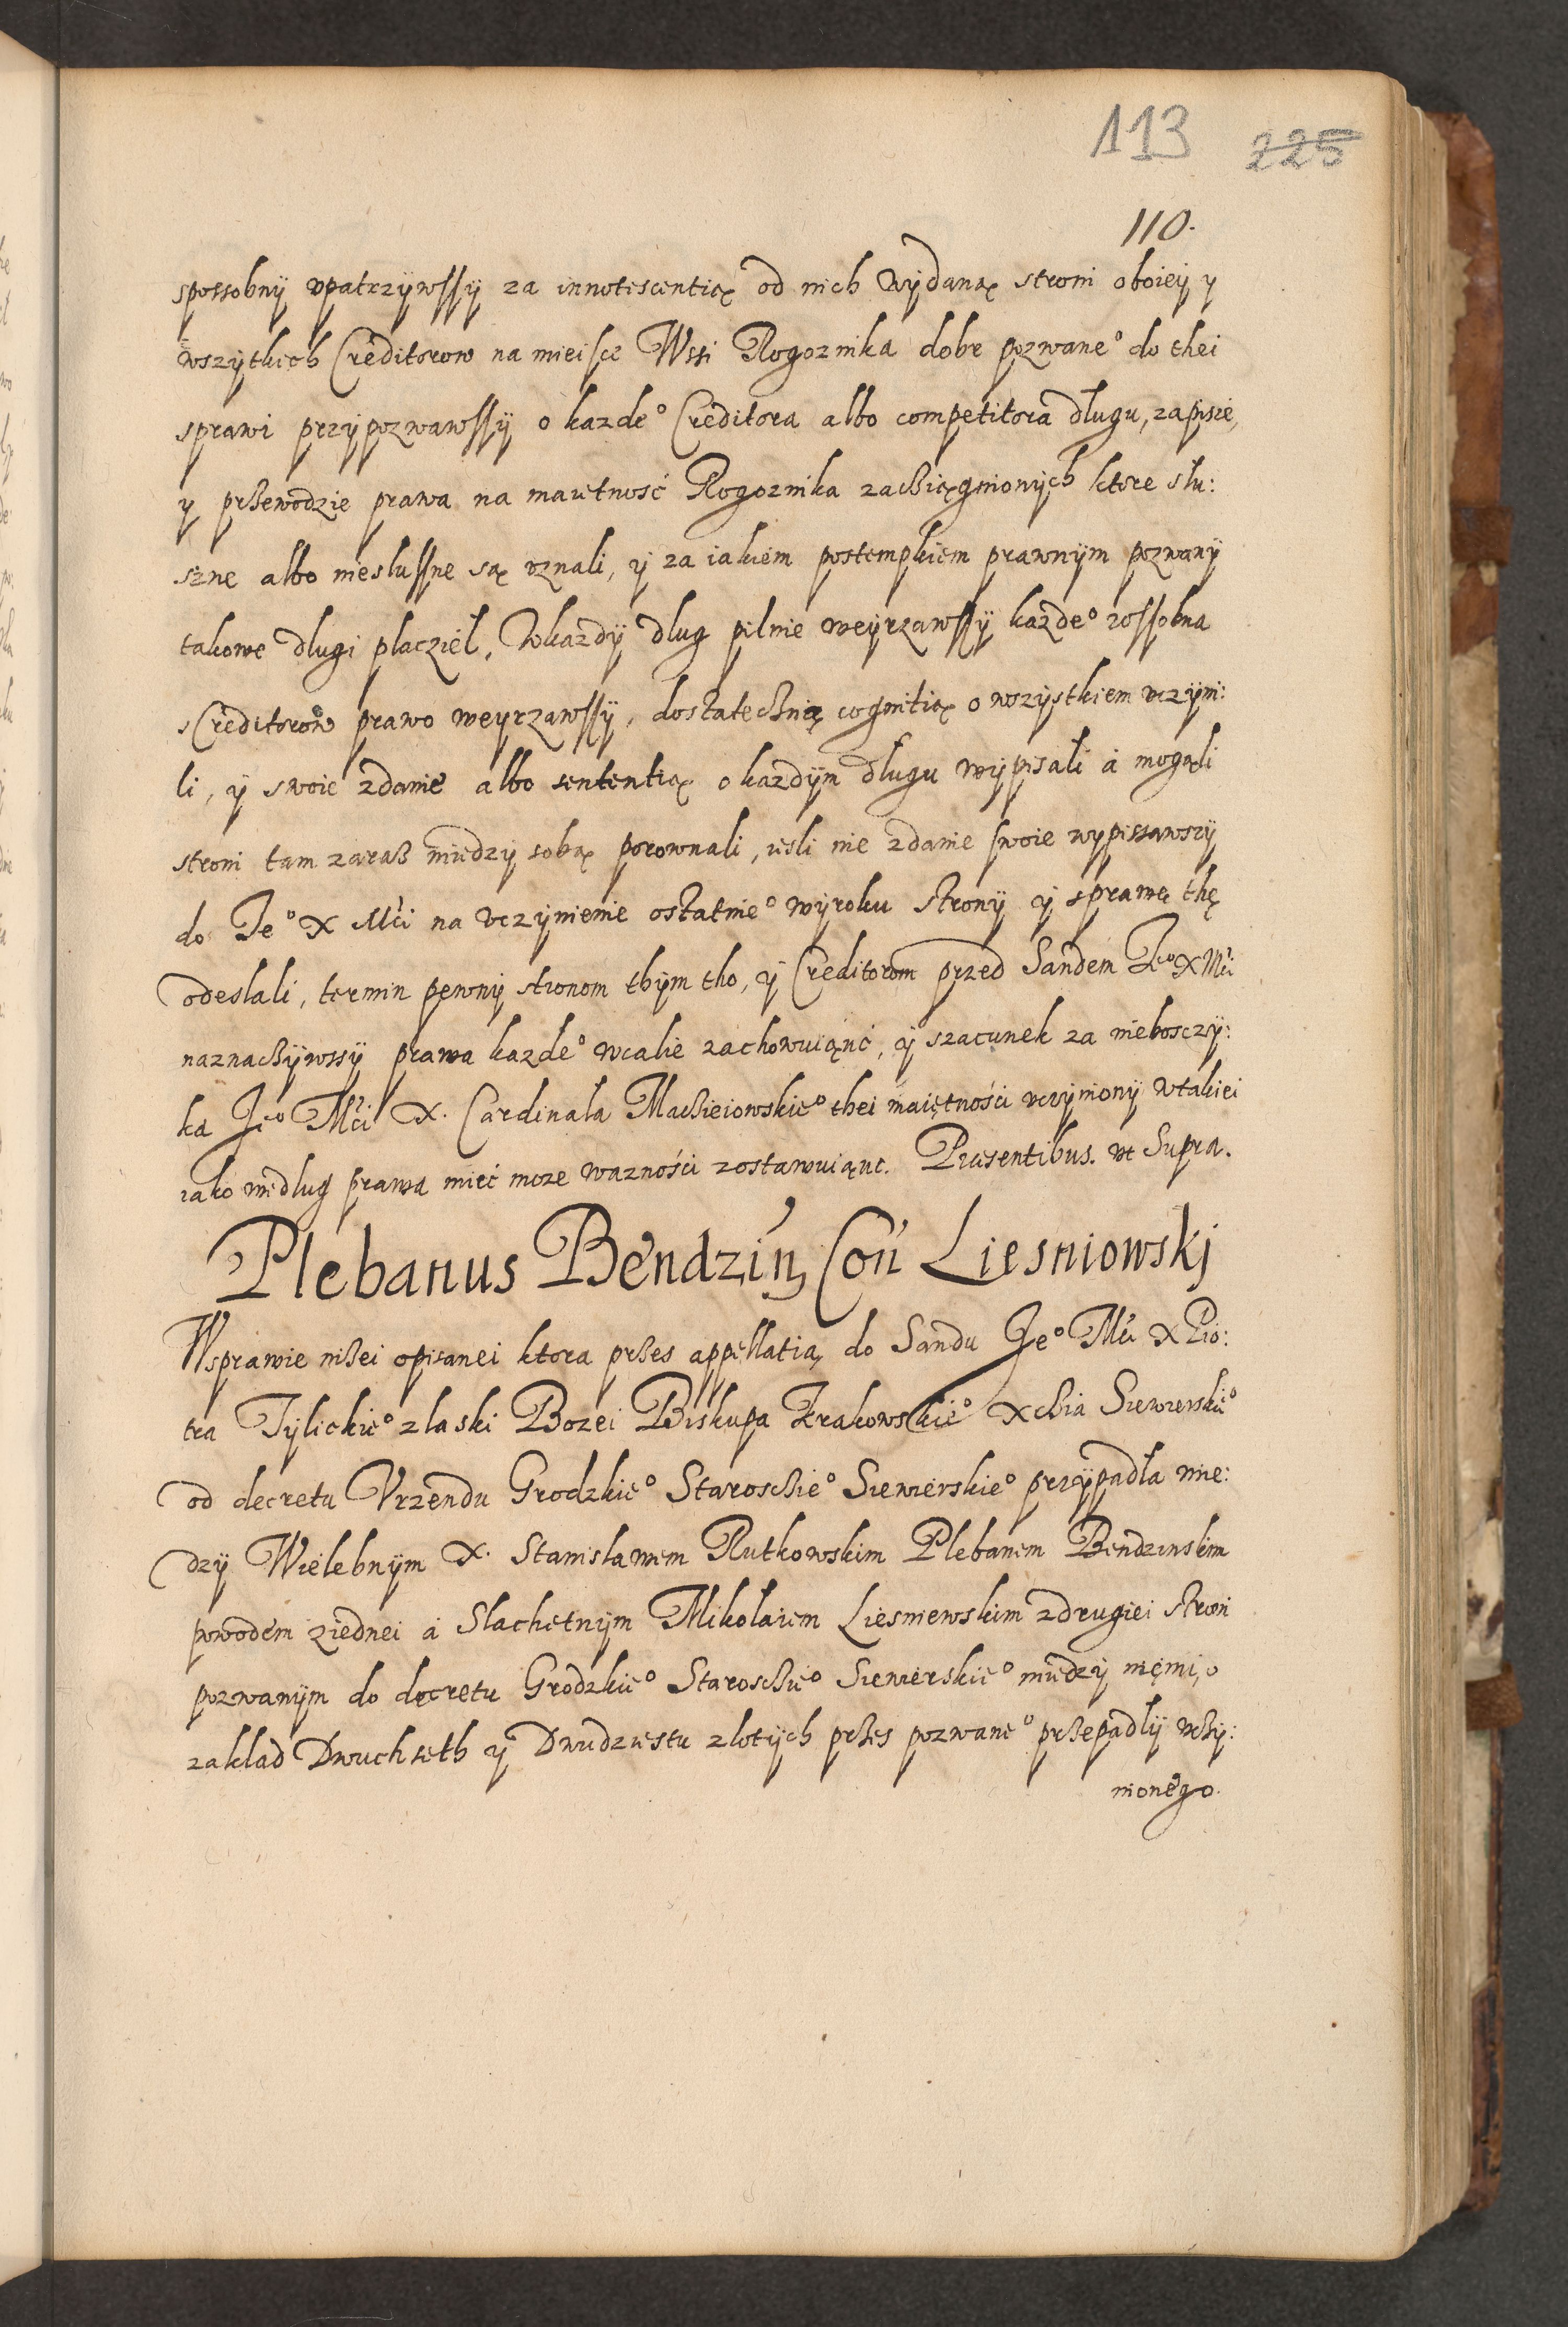 113 225
110.
spossobnÿ vpatrzÿwssÿ za innotescentią od nich wÿdaną stroni oboieÿ y
wszytkich Creditorow na mieisce Wsi Rogoznika dobr pozwane° do thei
sprawi przÿpozwawssÿ o kazde° Creditora albo competitora długu, zapisie,
y prßewodzie prawa na maiętnosć Rogoznika zachiągnionÿch ktore słu:
szne albo niesłussne są vznali, ÿ za iakiem postempkiem prawnÿm pozwanÿ
takowe długi płacziel, Wkazdÿ dług pilnie weÿrzawssÿ kazde° zossobna
s Creditorow prawo weyrzawssÿ, dostatechnią cognitią o wszystkiem vczÿni:
li, ÿ swoie zdanie albo sententią o kazdÿm długu wÿpisali á mogąli
stroni tam zaraß miedzy sobą porownali, iesli nie zdanie swoie wypissawszÿ
do Je° X Mći na vczÿnienie ostatnie° wÿroku stronÿ ÿ sprawę thę
odesłali, termin pewnÿ stronom thÿm tho, ÿ Creditorom przed Sandem Je° X Mći
naznachÿwssÿ prawa kazde° wcalie zachowuiąnć, ÿ szacunek za niebosczÿ:
ka Je° Mći X. Cardinała Machieiowskie° thei maiętnosći vczÿnionÿ wtakiei
iako wedlug prawa mieć moze waznosći zostawuiąnc. Præsentibus. vt Supra.
Plebanus Bendzin Con Liesniowskj
Wsprawie nißei opisanei ktora prßes appellatią do Sandu Je° Mći X Pio:
tra Tÿlickie° z laski Bozei Biskupa Krakowskie° Xchia Siewierskie°
od decretu Vrzendu Grodzkie° Staroschie° Siewierskie° przÿpadła mie:
dzÿ Wielebnÿm X. Stanisławem Rutkowskim Plebanem Bendzinskim
powodem ziednei á Slachetnÿm Mikołaiem Liesniewskim zdrugiei stroni
pozwanÿm do decretu Grodzkie° Staroschie° Siewierskie° miedzÿ nięmi, o
zakład Dwuchseth ÿ Dwudziestu złotÿch prßes pozwane° prßepadłÿ vchÿ:
nionego.